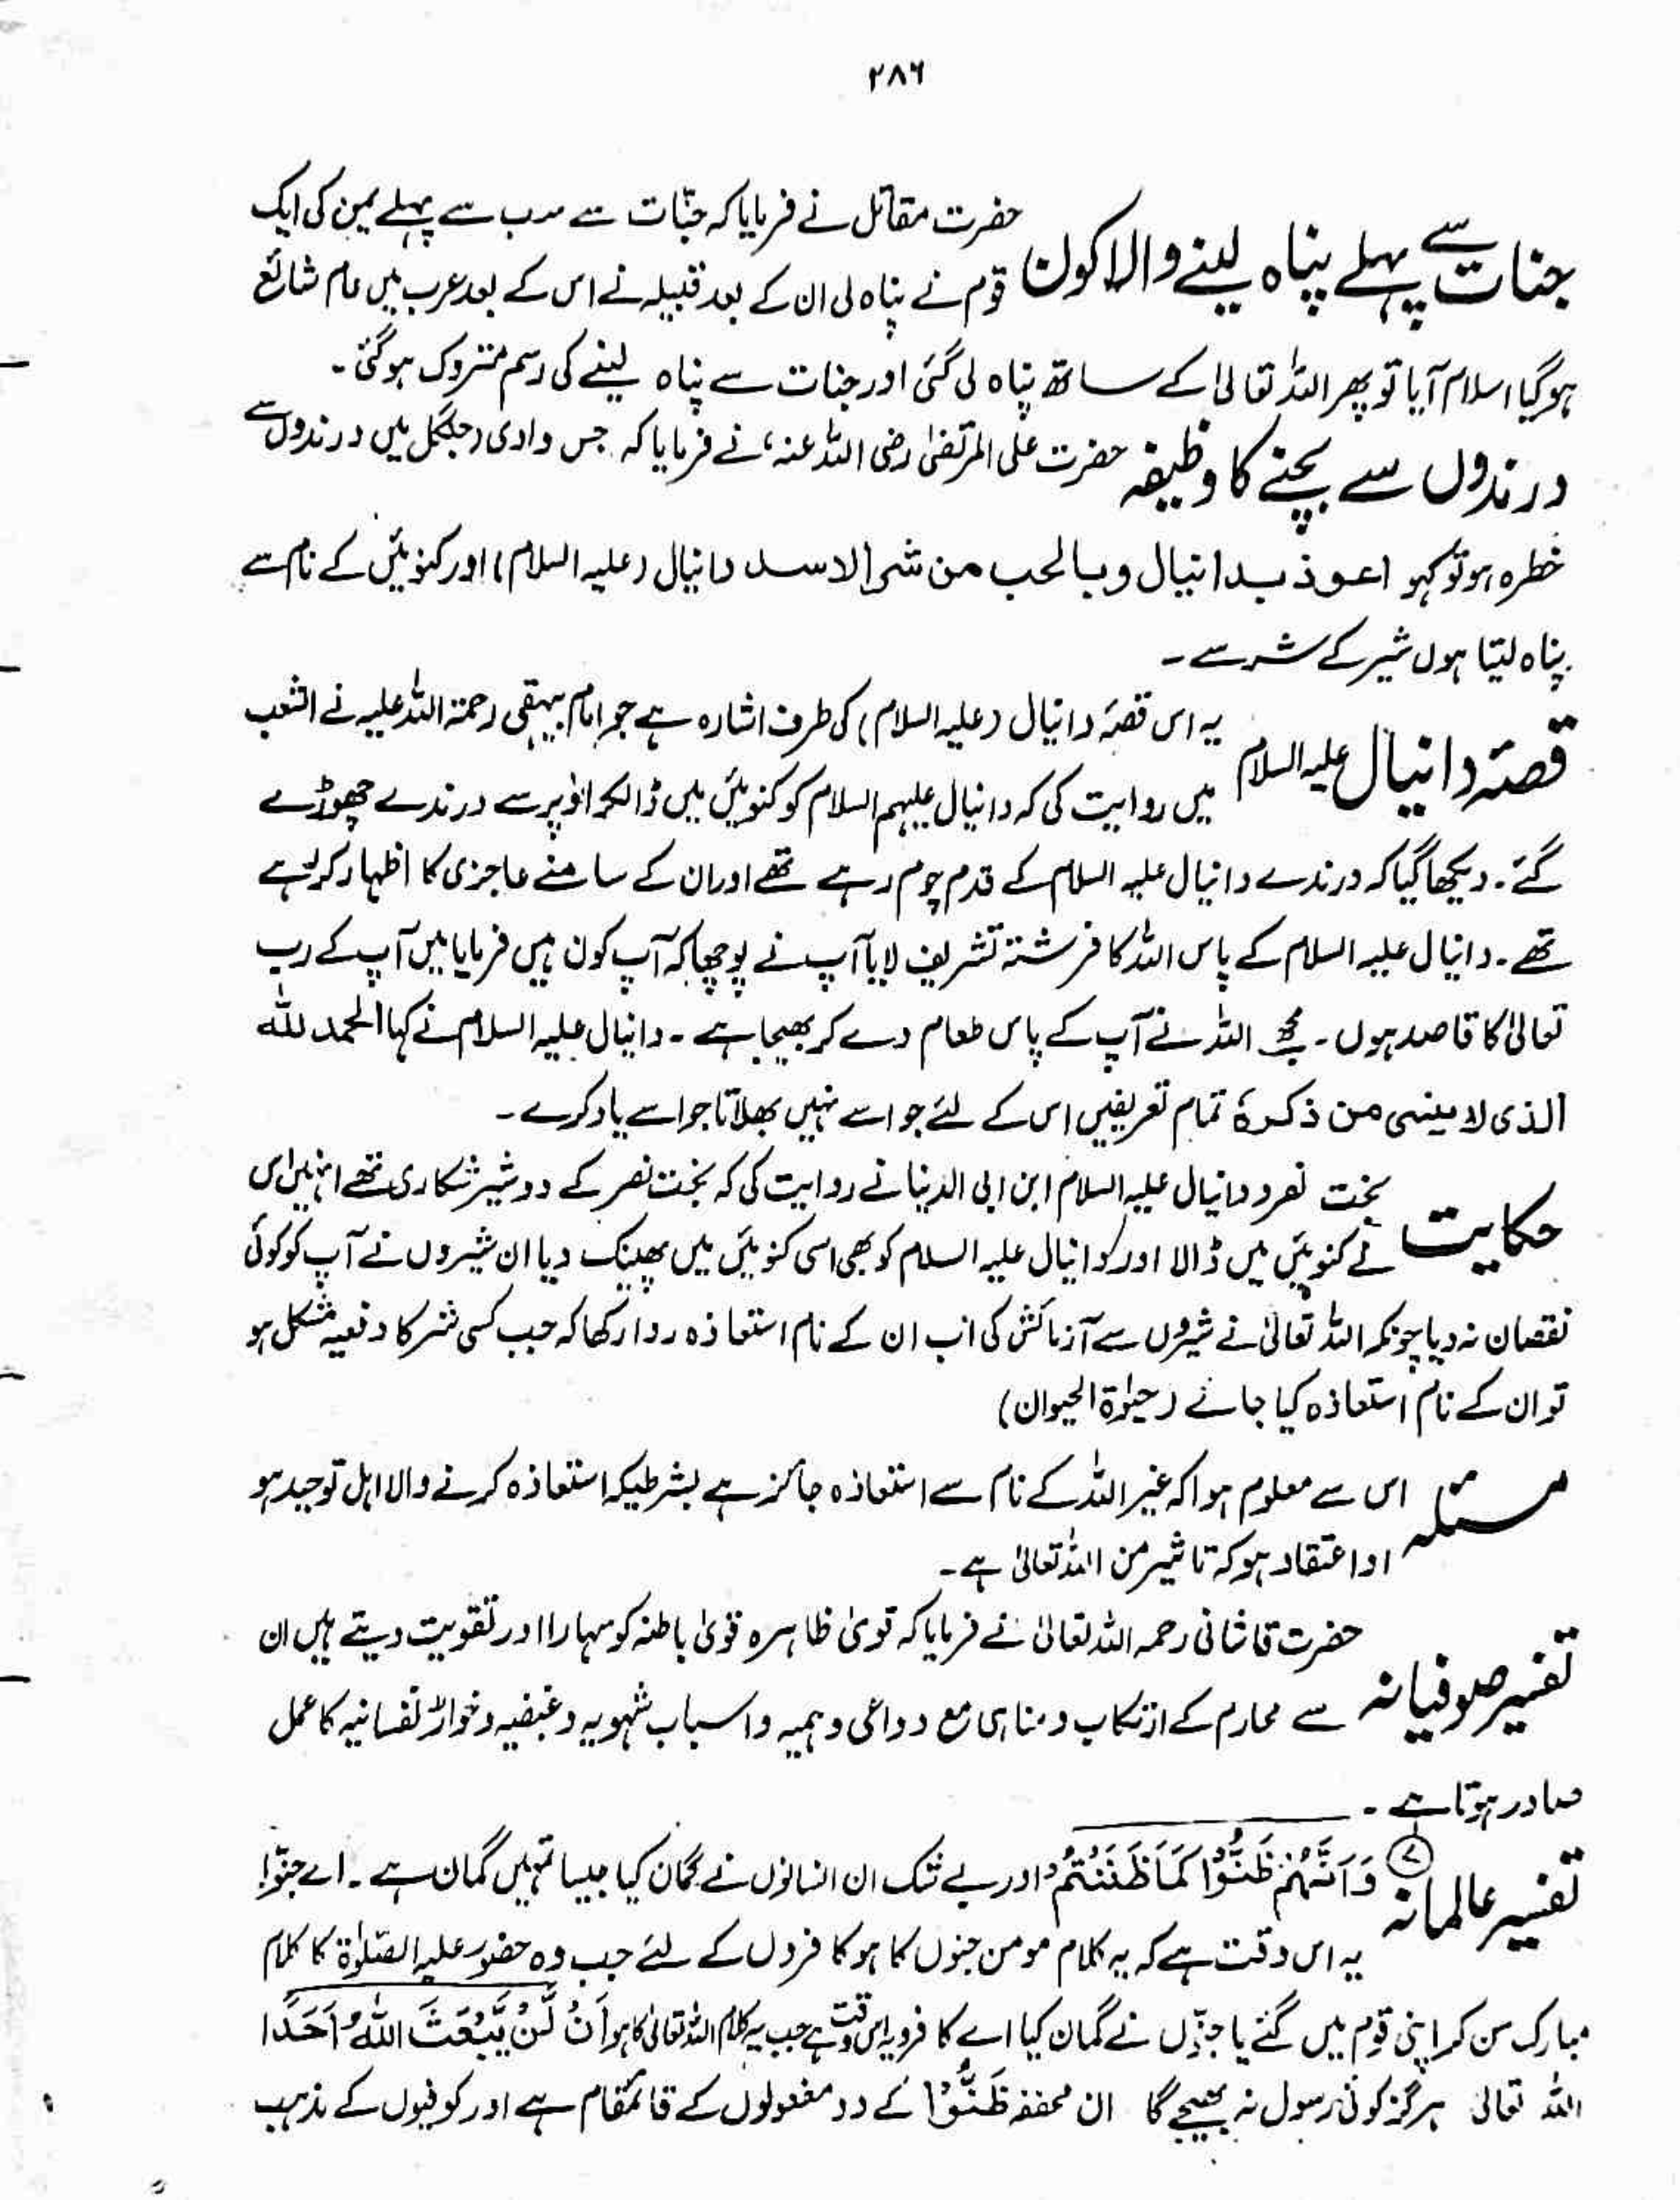 ۲۸۶
جنات سے پہلے پناہ لینے والا کون حضرت مقاتل نے فرمایا کہ جنّات سے سب سے پہلے یمن کی ایک
قوم نے پناہ لی ان کے بعد قبیلہ نے اس کے بعد عرب میں عام شائع
ہوگیا اسلام آیا تو پھر اللہ تعالیٰ کے ساتھ پناہ لی گئی اور جنات سے پناہ لینے کی رسم متروک ہوگئی۔
درندوں سے بچنے کا وظیفہ حضرت علی المرتضیٰ رضی اللہ عنہ، نے فرمایا کہ جس وادی (جنگل میں درندوں سے
خطرہ ہو تو کہو اعوذ بدانیال وبالحب من شر الاسد دانیال (علیہ السلام) اور کنوئیں کے نام سے
پناہ لیتا ہوں شیر کے شر سے۔
قصۂ دانیال علیہ السلام یہ اس قصۂ دانیال (علیہ السلام) کی طرف اشارہ ہے جو امام بیہقی رحمۃ اللہ علیہ نے الشعب
میں روایت کی کہ دانیال علیہم السلام کو کنوئیں میں ڈالکر اوپر سے درندے چھوڑے
گئے۔ دیکھا گیا کہ درندے دانیال علیہ السلام کے قدم چوم رہے تھے اور ان کے سامنے عاجزی کا اظہار کر رہے
تھے۔ دانیال علیہ السلام کے پاس اللہ کا فرشتہ تشریف لایا آپ نے پوچھا کہ آپ کون ہیں فرمایا میں آپ کے رب
تعالیٰ کا قاصد ہوں۔ مجھے اللہ نے آپ کے پاس طعام دے کر بھیجا ہے۔ دانیال علیہ السلام نے کہا الحمد للہ
الذی لا ینسی من ذکرہٗ تمام تعریفیں اس کے لئے جو اسے نہیں بھلاتا جو اسے یاد کرے۔
حکایت بخت نصر و دانیال علیہ السلام ابن ابی الدنیا نے روایت کی کہ بخت نصر کے دو شیر شکاری تھے انہیں اس
نے کنوئیں میں ڈالا اور دانیال علیہ السلام کو بھی اسی کنوئیں میں پھینک دیا ان شیروں نے آپ کو کوئی
نقصان نہ دیا چونکہ اللہ تعالیٰ نے شیروں سے آزمائش کی اب ان کے نام استعاذہ روا رکھا کہ جب کسی شر کا دفعیہ مشکل ہو
تو ان کے نام استعاذہ کیا جائے (حیٰوۃ الحیوان)
مسئلہ اس سے معلوم ہوا کہ غیر اللہ کے نام سے استعاذہ جائز ہے بشرطیکہ استعاذہ کرنے والا اہل توحید ہو
اوا عتقاد ہو کہ تاثیر من اللہ تعالیٰ ہے۔
تفسیر صوفیانہ حضرت قاشانی رحمہ اللہ تعالیٰ نے فرمایا کہ قویٰ ظاہرہ قویٰ باطنہ کو سہارا اور تقویت دیتے ہیں ان
سے محارم کے ارتکاب و مناہی مع دواعی وہمیہ و اسباب شہویہ و غضبیہ و خواطر نفسانیہ کا عمل
صادر ہوتا ہے۔
تفسیر عالمانہ ⑦ وَاَنَّھُمْ ظَنُّوْا کَمَا ظَنَنْتُمْ اور بے شک ان انسانوں نے گمان کیا جیسا تمہیں گمان ہے۔ اے جنّو!
یہ اس وقت ہے کہ یہ کلام مومن جنوں کا ہو کافروں کے لئے جب وہ حضور علیہ الصلوٰۃ کا کلام
مبارک سن کر اپنی قوم میں گئے یا جنّوں نے گمان کیا اے کافرو یہ اس وقت ہے جب یہ کلام اللہ تعالیٰ کا ہو اَنْ لَّنْ یَّبْعَثَ اللّٰہُ اَحَدًا
اللہ تعالیٰ ہرگز کوئی رسول نہ بھیجے گا ان مخففہ ظَنُّوْا کے دو مفعولوں کے قائمقام ہے اور کوفیوں کے مذہب